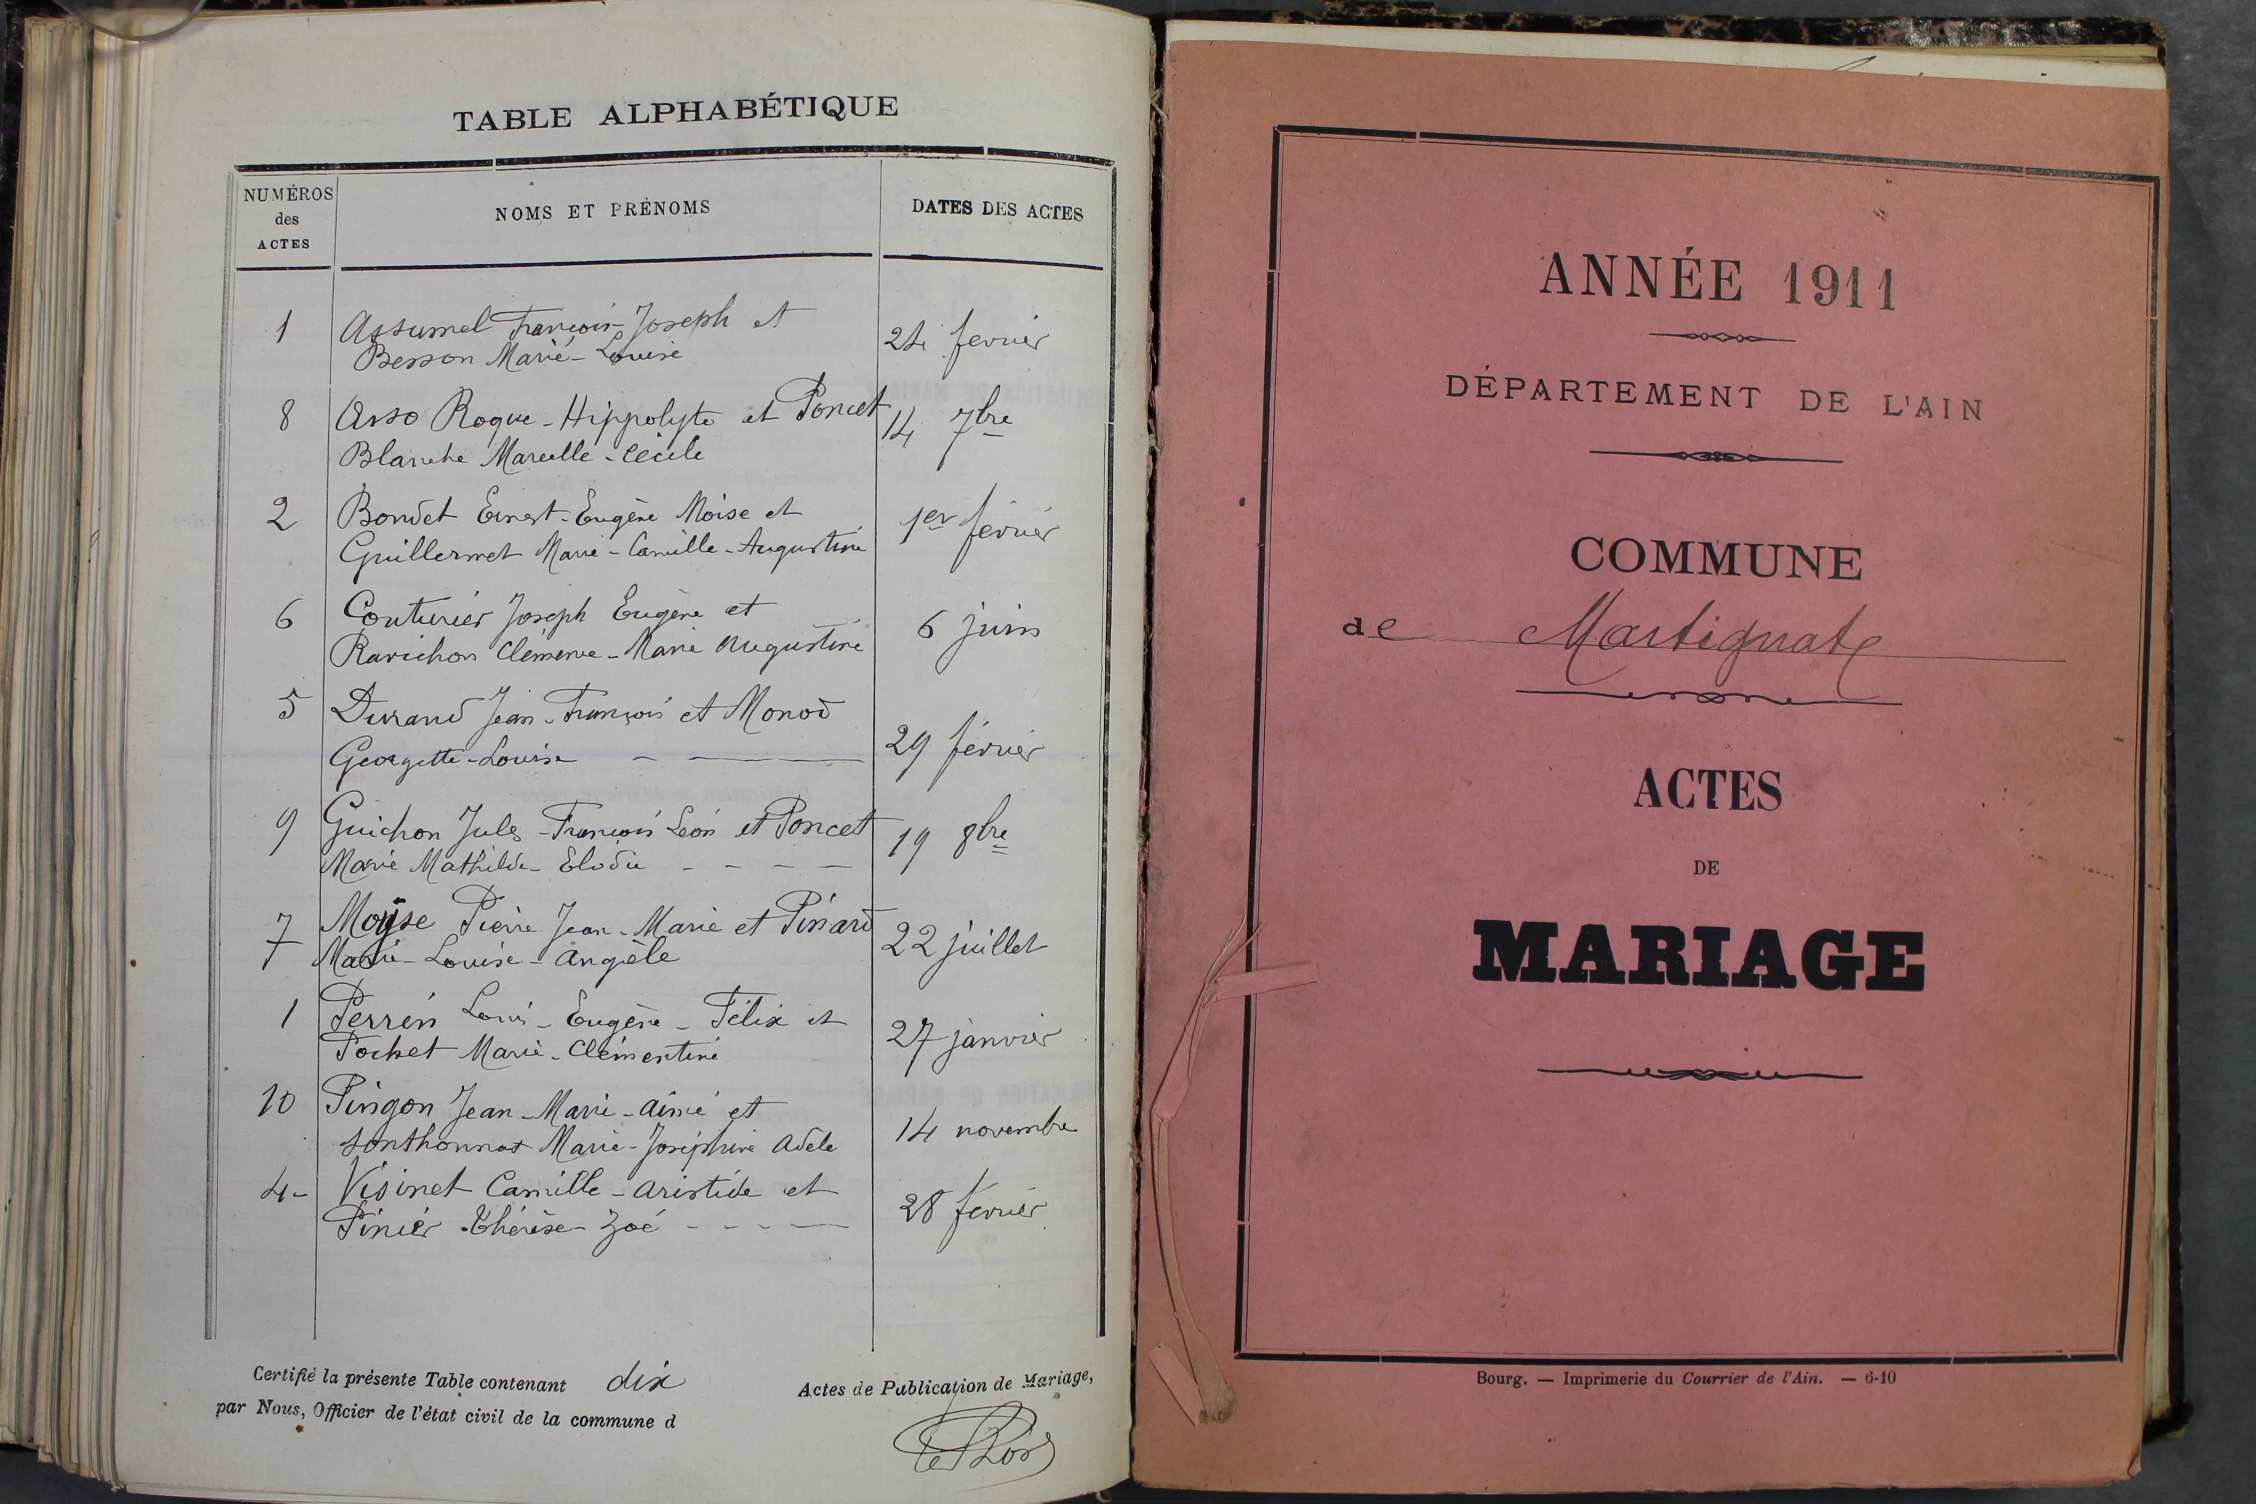 TABLE ALPHABÉTIQUE
NUMÉROS
des
ACTES
NOMS ET PRÉNOMS
DATES DES ACTES
1 Assumel François-Joseph et
Besson Marie-Louise
24 fevrier
8 Arso Roque-Hippolyte et Poncet
14 7bre
Blanche Marcelle-Cécile
2 Bondet Ernest-Eugène Moïse et
1er février
Guillermet Marie-Camille-Augustine
6 Couturier Joseph Eugène et
6 juin
Ravichon Clémence-Marie Augustine
5 Durand Jean-François et Monod
29 février
Georgette-Louise
9 Guichon Jules-François Léon et Poncet
19 8bre
Marie Mathilde-Elodie
7 Moÿse Pierre Jean-Marie et Pinard
22 juillet
Marie-Louise-Angèle
1 Perrin Louis-Eugène-Félix et
27 janvier
Pochet Marie-Clémentine
10 Pingon Jean-Marie-Aimé et
14 novembre
Sonthonnax Marie-Joséphine Adèle
4- Visinet Camille-Aristide et
28 février
Pinier Thérèse-Zoé
Certifié la présente Table contenant dix Actes de Publication de Mariage,
par Nous, Officier de l'état civil de la commune d
ANNÉE 1911
DÉPARTEMENT DE L'AIN
COMMUNE
de Martignat
ACTES
DE
MARIAGE
Bourg. — Imprimerie du Courrier de l'Ain. — 6-10